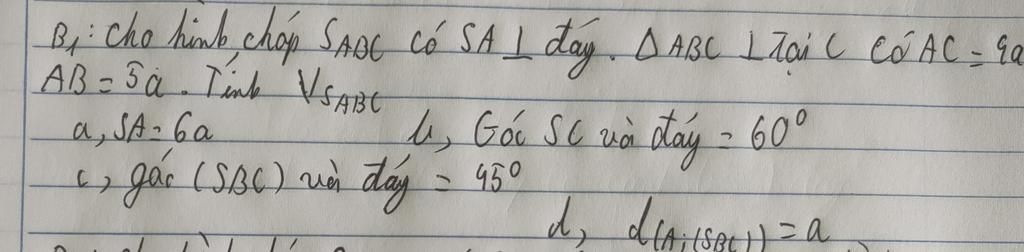 B₁: Cho hình chóp SABC có SA ⊥ đáy. Δ ABC ⊥ Tại C có AC = 4a
AB = 5a. Tính V_SABC
a, SA = 6a b, Góc SC với đáy = 60°
c, góc (SBC) với đáy = 45°
d, d(A;(SBC)) = a